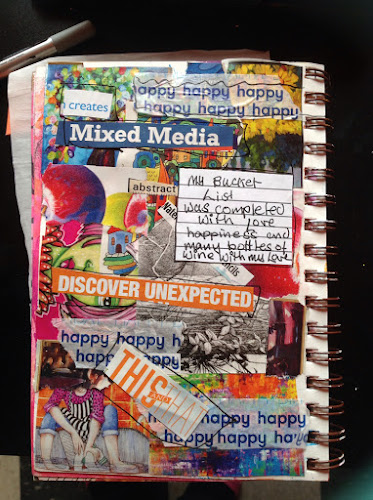 happy happy happy
n creates
happy happy happy
Mixed Media
abstract
My Bucket
List
was completed
with love
happiness and
many bottles of
wine with my love
DISCOVER UNEXPECTED
happy happy h
happy happy
THIS
happy happy
happy happy happy